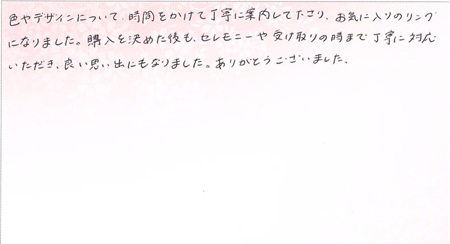 色やデザインについて、時間をかけて丁寧に案内して下さり、お気に入りのリング
になりました。購入を決めた後も、セレモニーや受け取りの時まで丁寧に対応
いただき、良い思い出にもなりました。ありがとうございました。